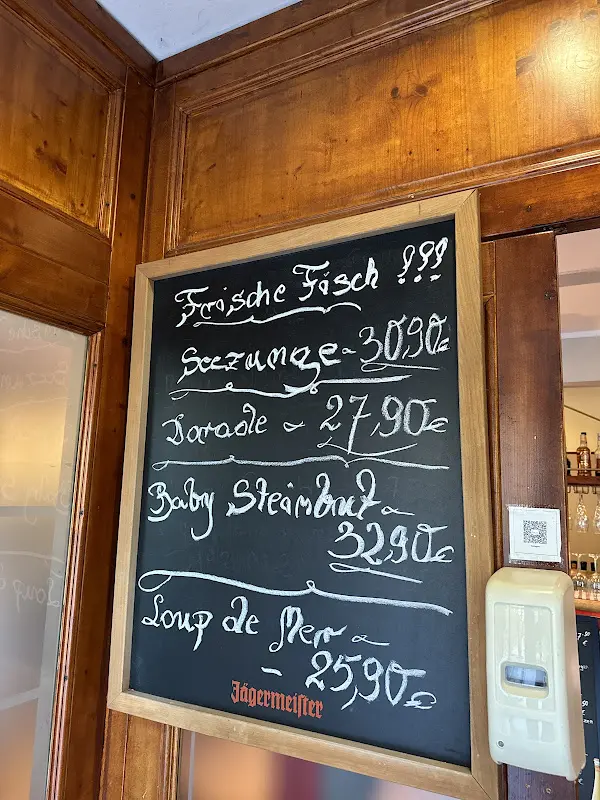 Frische Fisch !!!
Seezunge ~ 30,90€
Dorade ~ 27,90€
Baby Steinbutt ~
32,90€
Loup de Mer ~
- 25,90€
Jägermeister